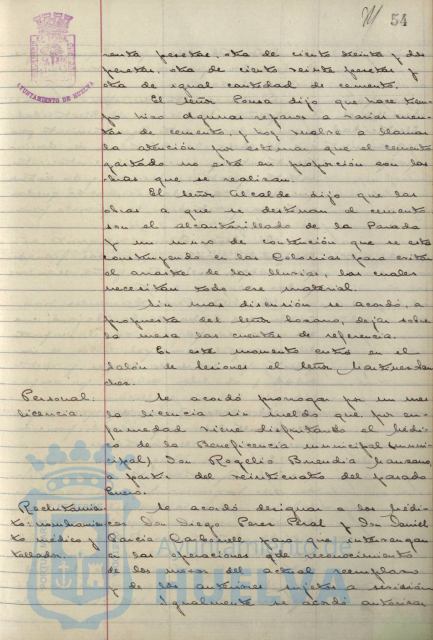 54
AYUNTAMIENTO DE HUELVA
renta pesetas, otra de ciento treinta y dos
pesetas, otra de ciento veinte pesetas y
otra de igual cantidad de cemento.
El señor Ponsa dijo que hace tiem-
po hizo algunos reparos a varias cuen-
tas de cemento, y hoy vuelve a llamar
la atención por estimar que el cemento
gastado no está en proporción con las
obras que se realizan.
El señor Alcalde dijo que las
obras a que se destinan el cemento
son al alcantarillado de la Parada
y un muro de contención que se está
construyendo en las Colonias para evitar
el arrastre de las lluvias, las cuales
necesitan todo ese material.
Sin mas discusión se acordó, a
propuesta del señor Lozano, dejar sobre
la mesa las cuentas de referencia.
En este momento entró en el
Salón de Sesiones el señor Martinez San-
chez.
Personal:
licencia.
Se acordó prorrogar por un mes
la licencia sin sueldo que por en-
fermedad viene disfrutando el Médi-
co de la Beneficencia municipal (muni-
cipal) Don Rogelio Buendia Manzano,
a partir del veinticuatro del pasado
Enero.
Reclutamien-
to: nombramien-
to médicos y
tallador.
Se acordó designar a los médi-
cos Don Diego Perez Peral y Don Daniel
Garcia Carbonell para que intervengan
en las operaciones de reconocimiento
de los mozos del actual reemplazo
y de los anteriores sujetos a revisión.
Igualmente se acordó autorizar
Ayuntamiento de
HUELVA